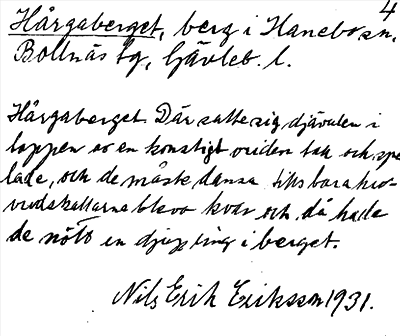 4
Hårgaberget, berg i Hanebo sn,
Bollnäs tg, Gävleb. l.
Hårgaberget. Där satte sig djävulen i
toppen av en konstigt vriden tall och spe
lade, och de måste dansa tills bara huv-
vudskallarna blevo kvar och då hade
de nött en djup ling i berget.
Nils Erik Eriksson 1931.